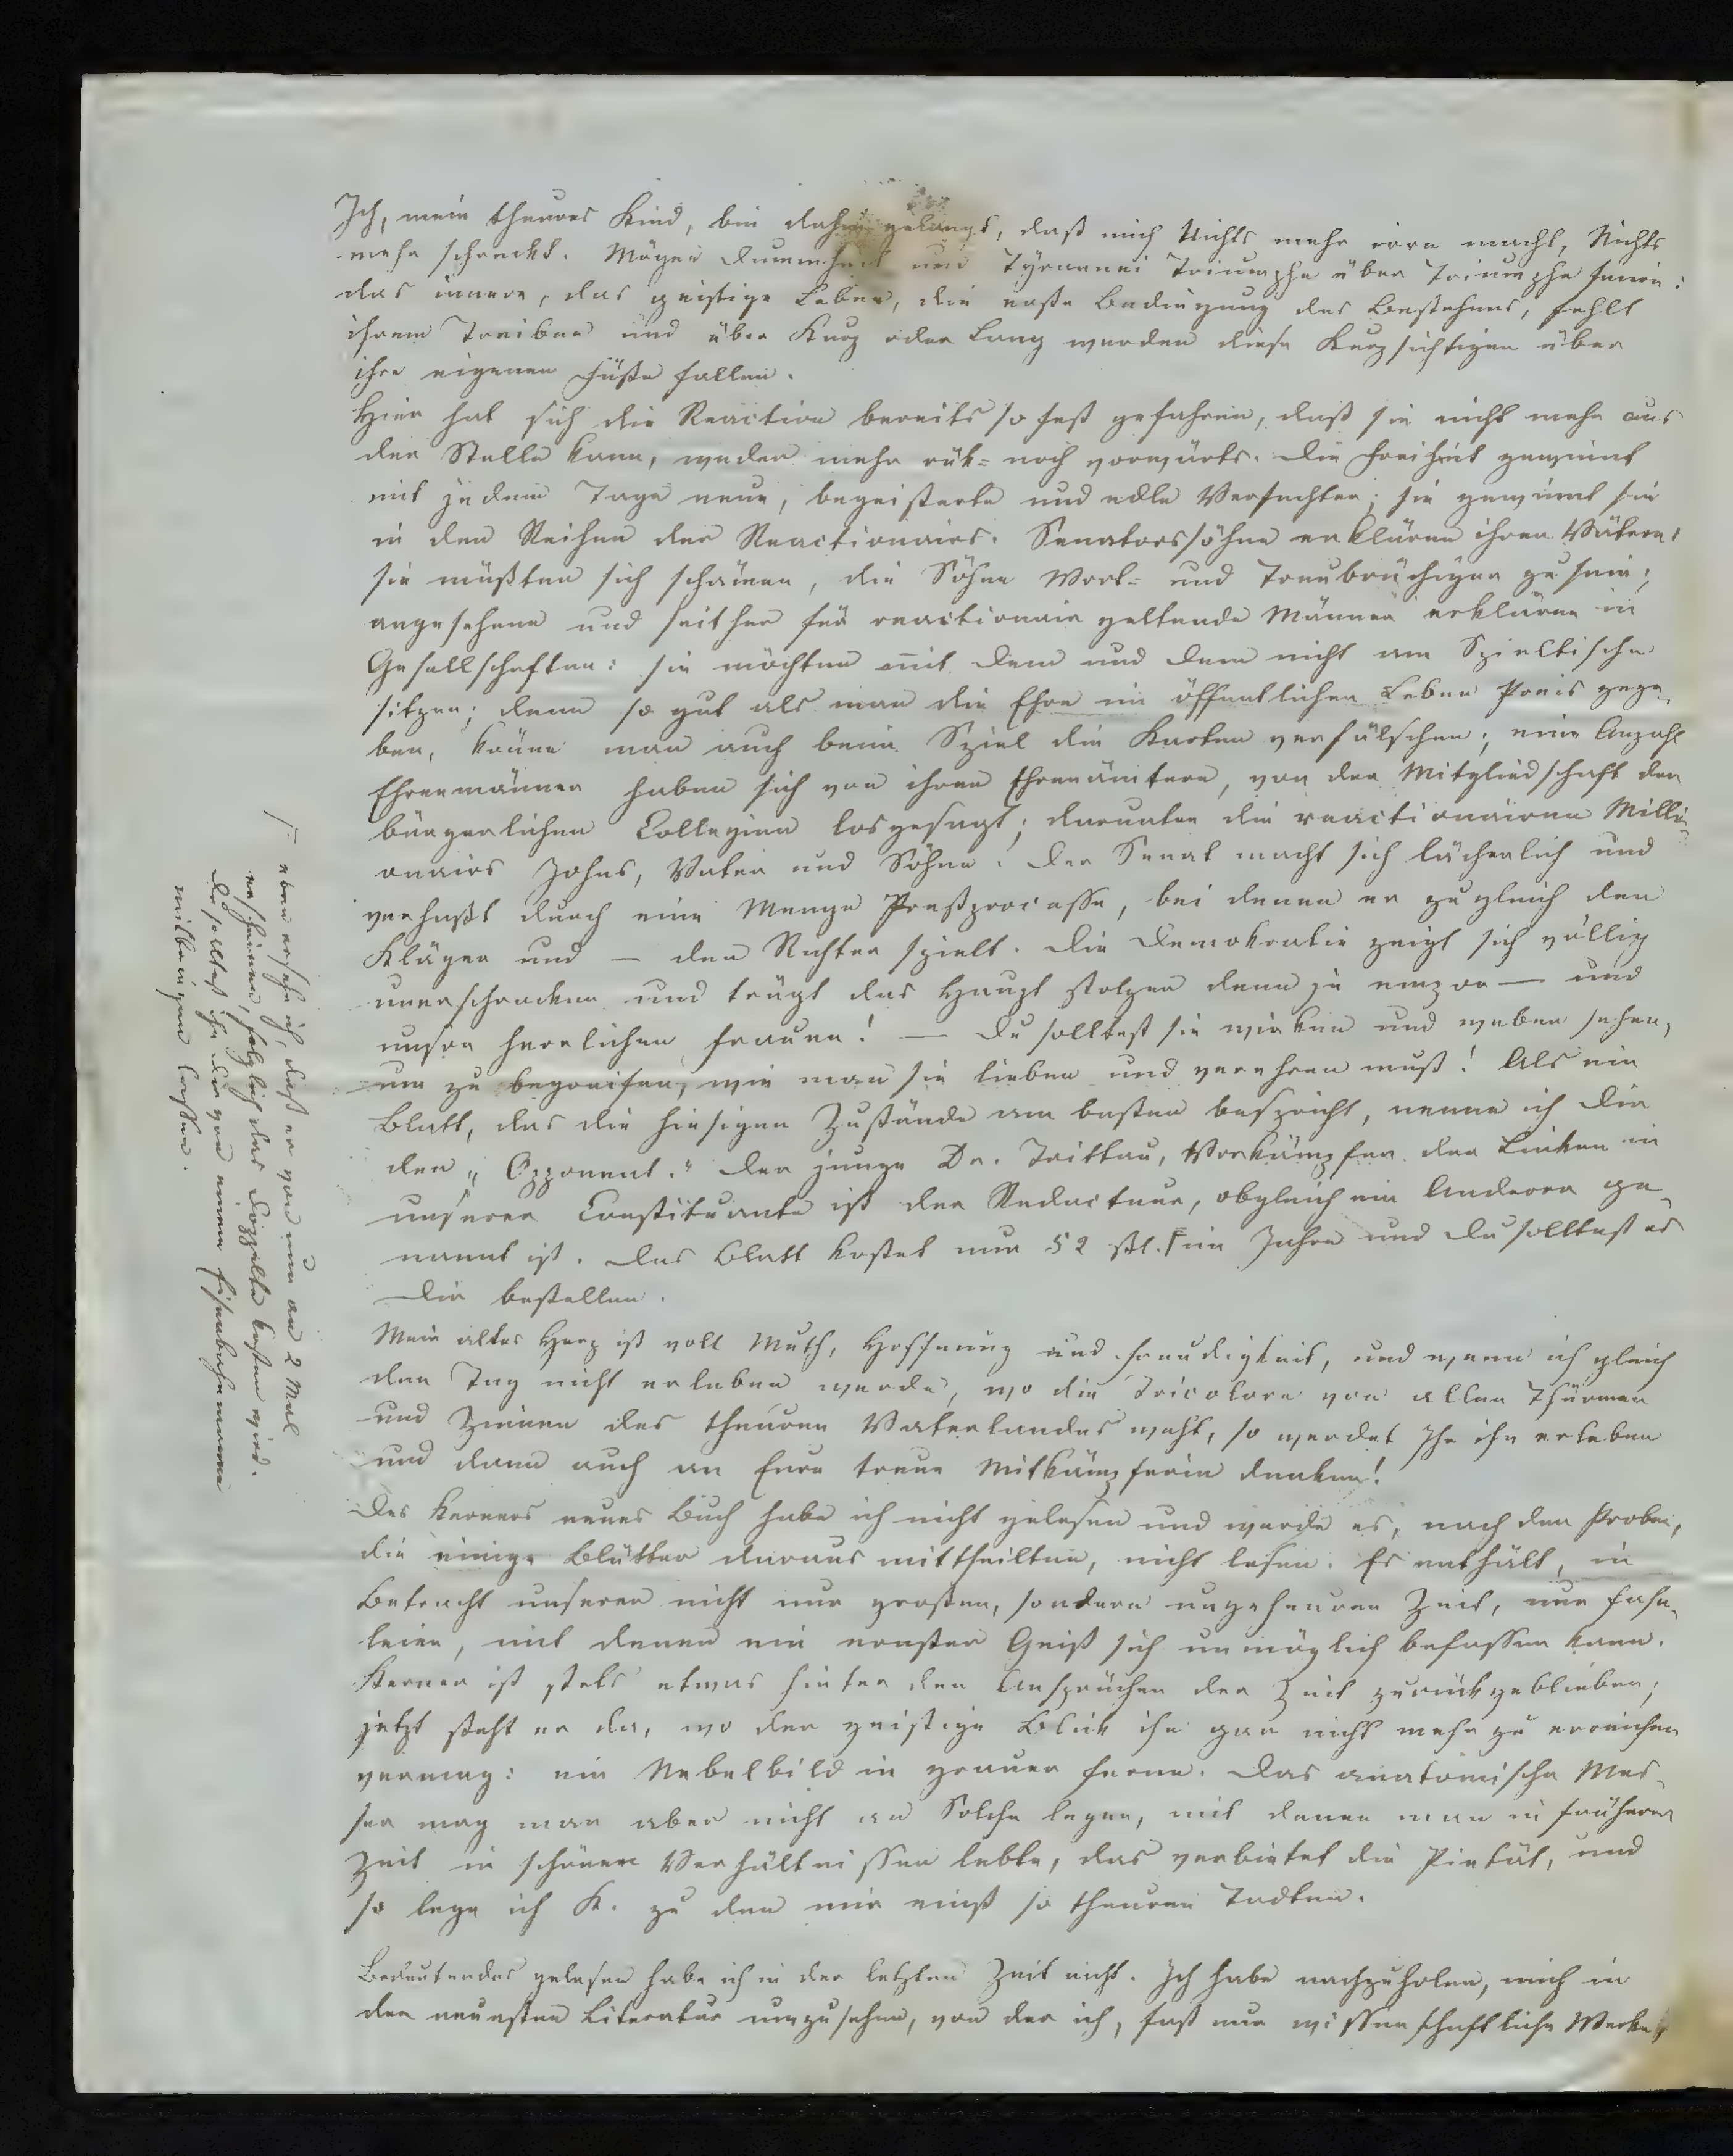 Ich, mein theures Kind, bin dahin gelangt, daß mich Nichts mehr irre macht, Nichts
mehr schreckt. Mögen Dummheit und Tÿrannei Triumphe über Triumphe feiern:
das innere, das geistige Leben, die erste Bedingung des Bestehens, fehlt
ihrem Treiben und über Kurz oder Lang werden diese Kurzsichtigen über
ihre eigenen Füße fallen.
Hier hat sich die Reaction bereits so fest gefahren, daß sie nicht mehr aus
der Stelle kann, weder mehr rük- noch vorwärts. Die Freiheit gewinnt
mit jedem Tage neue, begeisterte und edle Verfechter; sie gewinnt sie
in den Reihen der Reactionairs. Senatorssöhne erklären ihren Vätern:
sie müßten sich schämen, die Söhne Wort- und Treubrüchiger zu sein;
angesehene und seither für reactionair geltende Männer erklären in
Gesellschaften: sie möchten mit Dem und Dem nicht am Spieltische
sitzen; denn so gut als man die Ehre im öffentlichen Leben Preis gege-
ben, könne man auch beim Spiel die Karten verfälschen; eine Anzahl
Ehrenmänner haben sich von ihren Ehrenämtern, von der Mitgliedschaft der
bürgerlichen Collegien losgesagt; darunter die reactionairen Milli-
onairs Johns, Vater und Söhne. Der Senat macht sich lächerlich und
verhaßt durch eine Menge Preßprocesse, bei denen er zugleich den
Kläger und — den Richter spielt. Die Demokratie zeigt sich völlig
unerschrocken und trägt das Haupt stolzer denn je empor — und
unsre herrlichen Frauen! — Du solltest sie wirken und weben sehen,
um zu begreifen, wie man sie lieben und verehren muß! Als ein
Blatt, das die hiesigen Zustände am besten bespricht, nenne ich Dir
den „Opponent." Der junge Dr. Trittau, Vorkämpfer der Linken in
unserer Constituante ist der Redacteur, obgleich ein Anderer ge-
nannt ist. Das Blatt kostet nur 52 ßl. F im Jahre und Du solltest es
Dir bestellen.
Mein altes Herz ist voll Muth, Hoffnung und Freudigkeit, und wenn ich gleich
den Tag nicht erleben werde, wo die Tricolore von allen Thürmen
und Zinnen des theuren Vaterlandes weht, so werdet Ihr ihn erleben
und dann auch an Eure treue Mitkämpferin denken!
Des Kerners neues Buch habe ich nicht gelesen und werde es, nach den Proben,
die einige Blätter daraus mittheilten, nicht lesen. Es enthält, in
Betracht unserer nicht nur großen, sondern ungeheuren Zeit, nur Fase-
leien, mit denen ein ernster Geist sich unmöglich befassen kann.
Kerner ist stets etwas hinter den Ansprüchen der Zeit zurückgeblieben;
jetzt steht er da, wo der geistige Blick ihn gar nicht mehr zu erreichen
vermag: ein Nebelbild in grauer Ferne. Das anatomische Mes-
ser mag man aber nicht an Solche legen, mit denen man in früherer
Zeit in schönen Verhältnissen lebte, das verbietet die Pietät, und
so lege ich K. zu den mir einst so theuren Todten.
Bedeutendes gelesen habe ich in der letzten Zeit nicht. Ich habe nachzuholen, mich in
der neuesten Literatur umzusehen, von der ich, fast nur wissenschaftliche Werke
F eben ersehe ich, daß er von nun an 2 Mal
erscheinen, folglich das Doppelte kosten wird.
Du solltest ihn Dir von einem Eisenbahnmanne
mitbringen lassen.